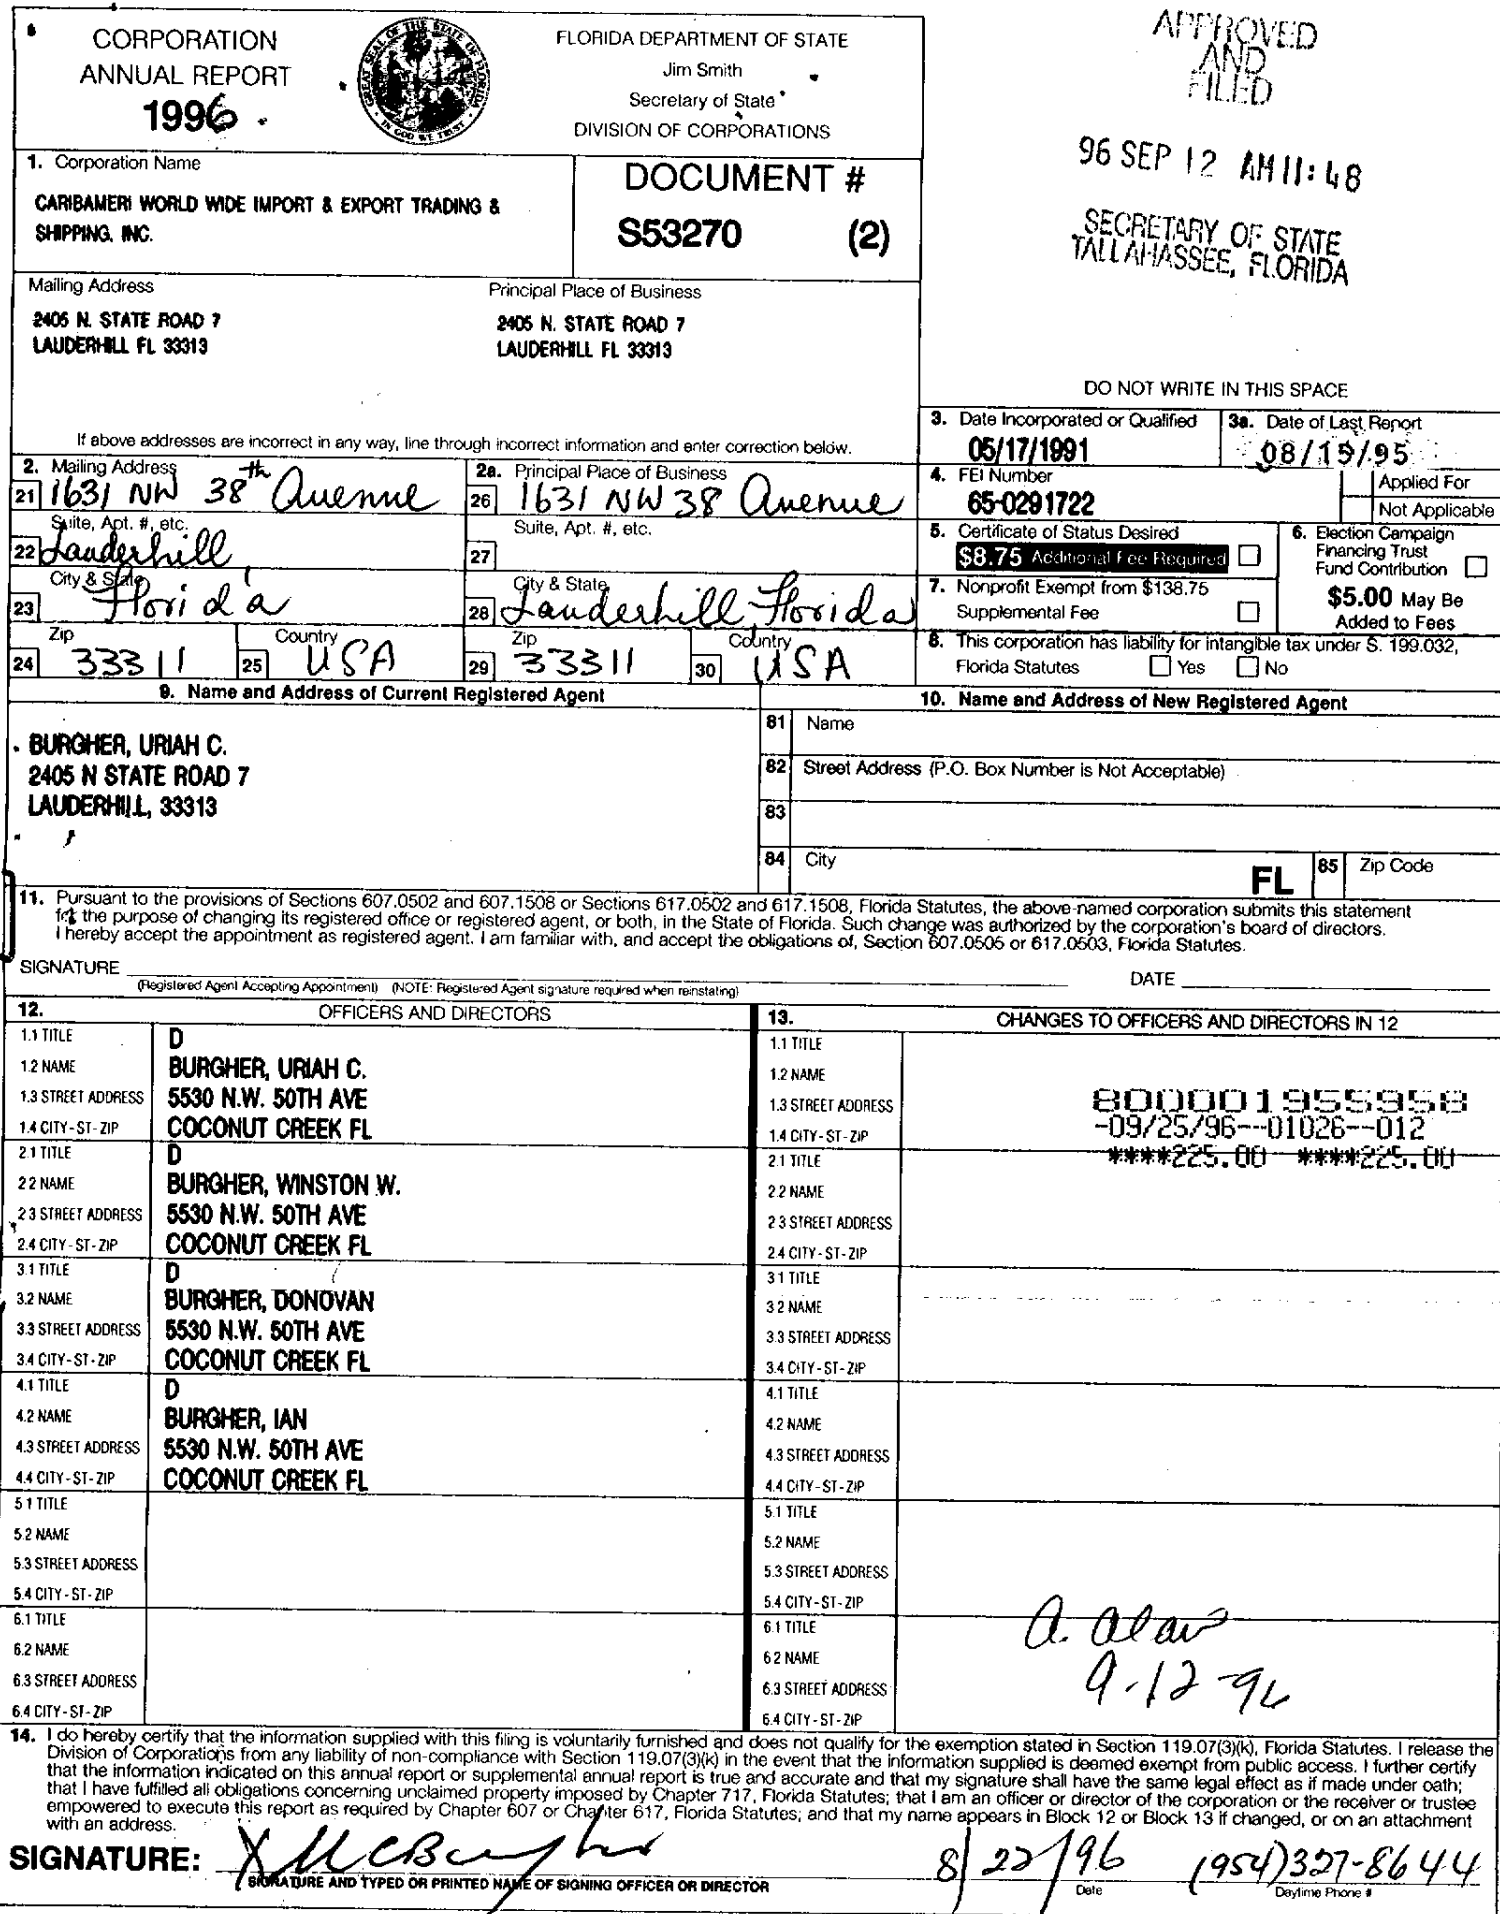 CORPORATION
ANNUAL REPORT
1996
GREAT SEAL OF THE STATE OF FLORIDA
IN GOD WE TRUST
FLORIDA DEPARTMENT OF STATE
Jim Smith
Secretary of State
DIVISION OF CORPORATIONS
APPROVED
AND
FILED
96 SEP 12 AM 11:48
SECRETARY OF STATE
TALLAHASSEE, FLORIDA
1. Corporation Name
CARIBAMERI WORLD WIDE IMPORT & EXPORT TRADING &
SHIPPING, INC.
DOCUMENT #
S53270 (2)
Mailing Address
2405 N. STATE ROAD 7
LAUDERHILL FL 33313
Principal Place of Business
2405 N. STATE ROAD 7
LAUDERHILL FL 33313
DO NOT WRITE IN THIS SPACE
If above addresses are incorrect in any way, line through incorrect information and enter correction below.
3. Date Incorporated or Qualified
05/17/1991
3a. Date of Last Report
08/15/95
2. Mailing Address
21 1631 NW 38th Avenue
2a. Principal Place of Business
26 1631 NW 38 Avenue
4. FEI Number
65-0291722
Applied For
Not Applicable
Suite, Apt. #, etc.
22 Lauderhill,
Suite, Apt. #, etc.
27
5. Certificate of Status Desired
$8.75 Additional Fee Required
6. Election Campaign
Financing Trust
Fund Contribution
$5.00 May Be
Added to Fees
City & State
23 Florida
City & State
28 Lauderhill, Florida
7. Nonprofit Exempt from $138.75
Supplemental Fee
Zip
24 33311
Country
25 USA
Zip
29 33311
Country
30 USA
8. This corporation has liability for intangible tax under S. 199.032,
Florida Statutes Yes No
9. Name and Address of Current Registered Agent
10. Name and Address of New Registered Agent
BURGHER, URIAH C.
2405 N STATE ROAD 7
LAUDERHILL, 33313
81 Name
82 Street Address (P.O. Box Number is Not Acceptable)
83
84 City
FL
85 Zip Code
11. Pursuant to the provisions of Sections 607.0502 and 607.1508 or Sections 617.0502 and 617.1508, Florida Statutes, the above-named corporation submits this statement
for the purpose of changing its registered office or registered agent, or both, in the State of Florida. Such change was authorized by the corporation's board of directors.
I hereby accept the appointment as registered agent. I am familiar with, and accept the obligations of, Section 607.0505 or 617.0503, Florida Statutes.
SIGNATURE
DATE
(Registered Agent Accepting Appointment) (NOTE: Registered Agent signature required when reinstating)
12. OFFICERS AND DIRECTORS
13. CHANGES TO OFFICERS AND DIRECTORS IN 12
1.1 TITLE D
1.2 NAME BURGHER, URIAH C.
1.3 STREET ADDRESS 5530 N.W. 50TH AVE
1.4 CITY-ST-ZIP COCONUT CREEK FL
2.1 TITLE D
2 2 NAME BURGHER, WINSTON W.
2 3 STREET ADDRESS 5530 N.W. 50TH AVE
2.4 CITY-ST-ZIP COCONUT CREEK FL
3.1 TITLE D
3.2 NAME BURGHER, DONOVAN
3.3 STREET ADDRESS 5530 N.W. 50TH AVE
3.4 CITY-ST-ZIP COCONUT CREEK FL
4.1 TITLE D
4.2 NAME BURGHER, IAN
4.3 STREET ADDRESS 5530 N.W. 50TH AVE
4.4 CITY-ST-ZIP COCONUT CREEK FL
5 1 TITLE
5.2 NAME
5.3 STREET ADDRESS
5.4 CITY-ST-ZIP
6.1 TITLE
6.2 NAME
6.3 STREET ADDRESS
6.4 CITY-ST-ZIP
1.1 TITLE
1.2 NAME
1.3 STREET ADDRESS
1.4 CITY-ST-ZIP
800001955958
-09/25/96--01026--012
****225.00 ****225.00
2.1 TITLE
2.2 NAME
2 3 STREET ADDRESS
2.4 CITY-ST-ZIP
3 1 TITLE
3 2 NAME
3.3 STREET ADDRESS
3.4 CITY-ST-ZIP
4.1 TITLE
4.2 NAME
4.3 STREET ADDRESS
4.4 CITY-ST-ZIP
5.1 TITLE
5.2 NAME
5.3 STREET ADDRESS
5.4 CITY-ST-ZIP
6.1 TITLE
6 2 NAME
6.3 STREET ADDRESS
6.4 CITY-ST-ZIP
A.
9-12-96
14. I do hereby certify that the information supplied with this filing is voluntarily furnished and does not qualify for the exemption stated in Section 119.07(3)(k), Florida Statutes. I release the
Division of Corporations from any liability of non-compliance with Section 119.07(3)(k) in the event that the information supplied is deemed exempt from public access. I further certify
that the information indicated on this annual report or supplemental annual report is true and accurate and that my signature shall have the same legal effect as if made under oath;
that I have fulfilled all obligations concerning unclaimed property imposed by Chapter 717, Florida Statutes; that I am an officer or director of the corporation or the receiver or trustee
empowered to execute this report as required by Chapter 607 or Chapter 617, Florida Statutes; and that my name appears in Block 12 or Block 13 if changed, or on an attachment
with an address.
SIGNATURE: X 8/22/96 (954)327-8644
SIGNATURE AND TYPED OR PRINTED NAME OF SIGNING OFFICER OR DIRECTOR
Date
Daytime Phone #